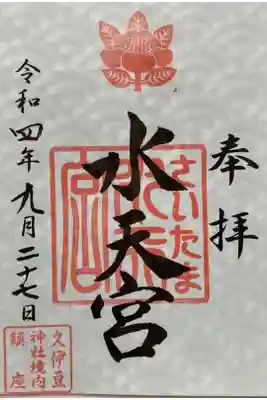 奉拝
さいたま
水天宮
令和四年九月二十七日
久伊豆
神社境内
鎮座